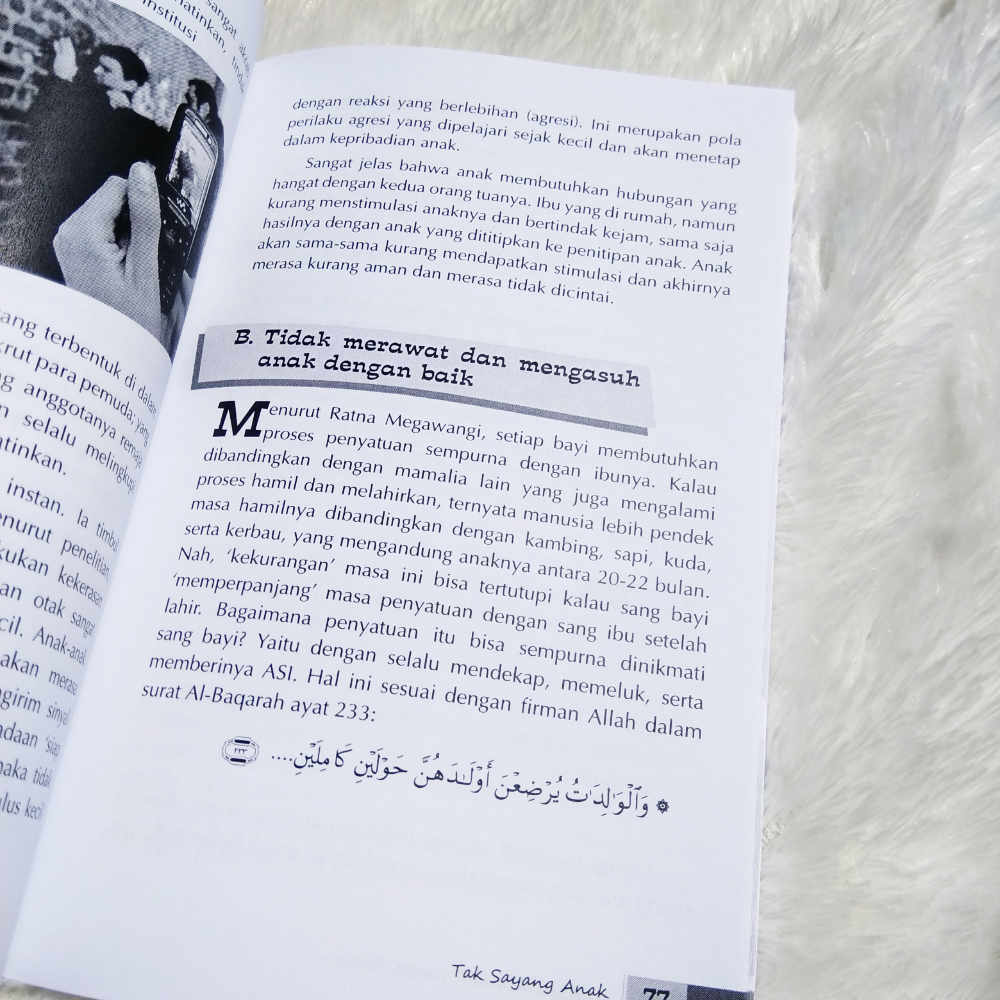 sangat
matinkan,
institusi
yang terbentuk di dalam
krut para pemuda; yang
anggotanya remaja
selalu melingkupi
atinkan.
instan. Ia timbul
enurut penelitian
kukan kekerasan
an otak sangat
cil. Anak-anak
akan merasa
ngirim sinyal
adaan 'siap
maka tidak
ulus kecil
dengan reaksi yang berlebihan (agresi). Ini merupakan pola
perilaku agresi yang dipelajari sejak kecil dan akan menetap
dalam kepribadian anak.
Sangat jelas bahwa anak membutuhkan hubungan yang
hangat dengan kedua orang tuanya. Ibu yang di rumah, namun
kurang menstimulasi anaknya dan bertindak kejam, sama saja
hasilnya dengan anak yang dititipkan ke penitipan anak. Anak
akan sama-sama kurang mendapatkan stimulasi dan akhirnya
merasa kurang aman dan merasa tidak dicintai.
B. Tidak merawat dan mengasuh
anak dengan baik
Menurut Ratna Megawangi, setiap bayi membutuhkan
proses penyatuan sempurna dengan ibunya. Kalau
dibandingkan dengan mamalia lain yang juga mengalami
proses hamil dan melahirkan, ternyata manusia lebih pendek
masa hamilnya dibandingkan dengan kambing, sapi, kuda,
serta kerbau, yang mengandung anaknya antara 20-22 bulan.
Nah, 'kekurangan' masa ini bisa tertutupi kalau sang bayi
'memperpanjang' masa penyatuan dengan sang ibu setelah
lahir. Bagaimana penyatuan itu bisa sempurna dinikmati
sang bayi? Yaitu dengan selalu mendekap, memeluk, serta
memberinya ASI. Hal ini sesuai dengan firman Allah dalam
surat Al-Baqarah ayat 233:
۞ وَٱلْوَٰلِدَٰتُ يُرْضِعْنَ أَوْلَـٰدَهُنَّ حَوْلَيْنِ كَامِلَيْنِ.... ٢٣٣
Tak Sayang Anak
77